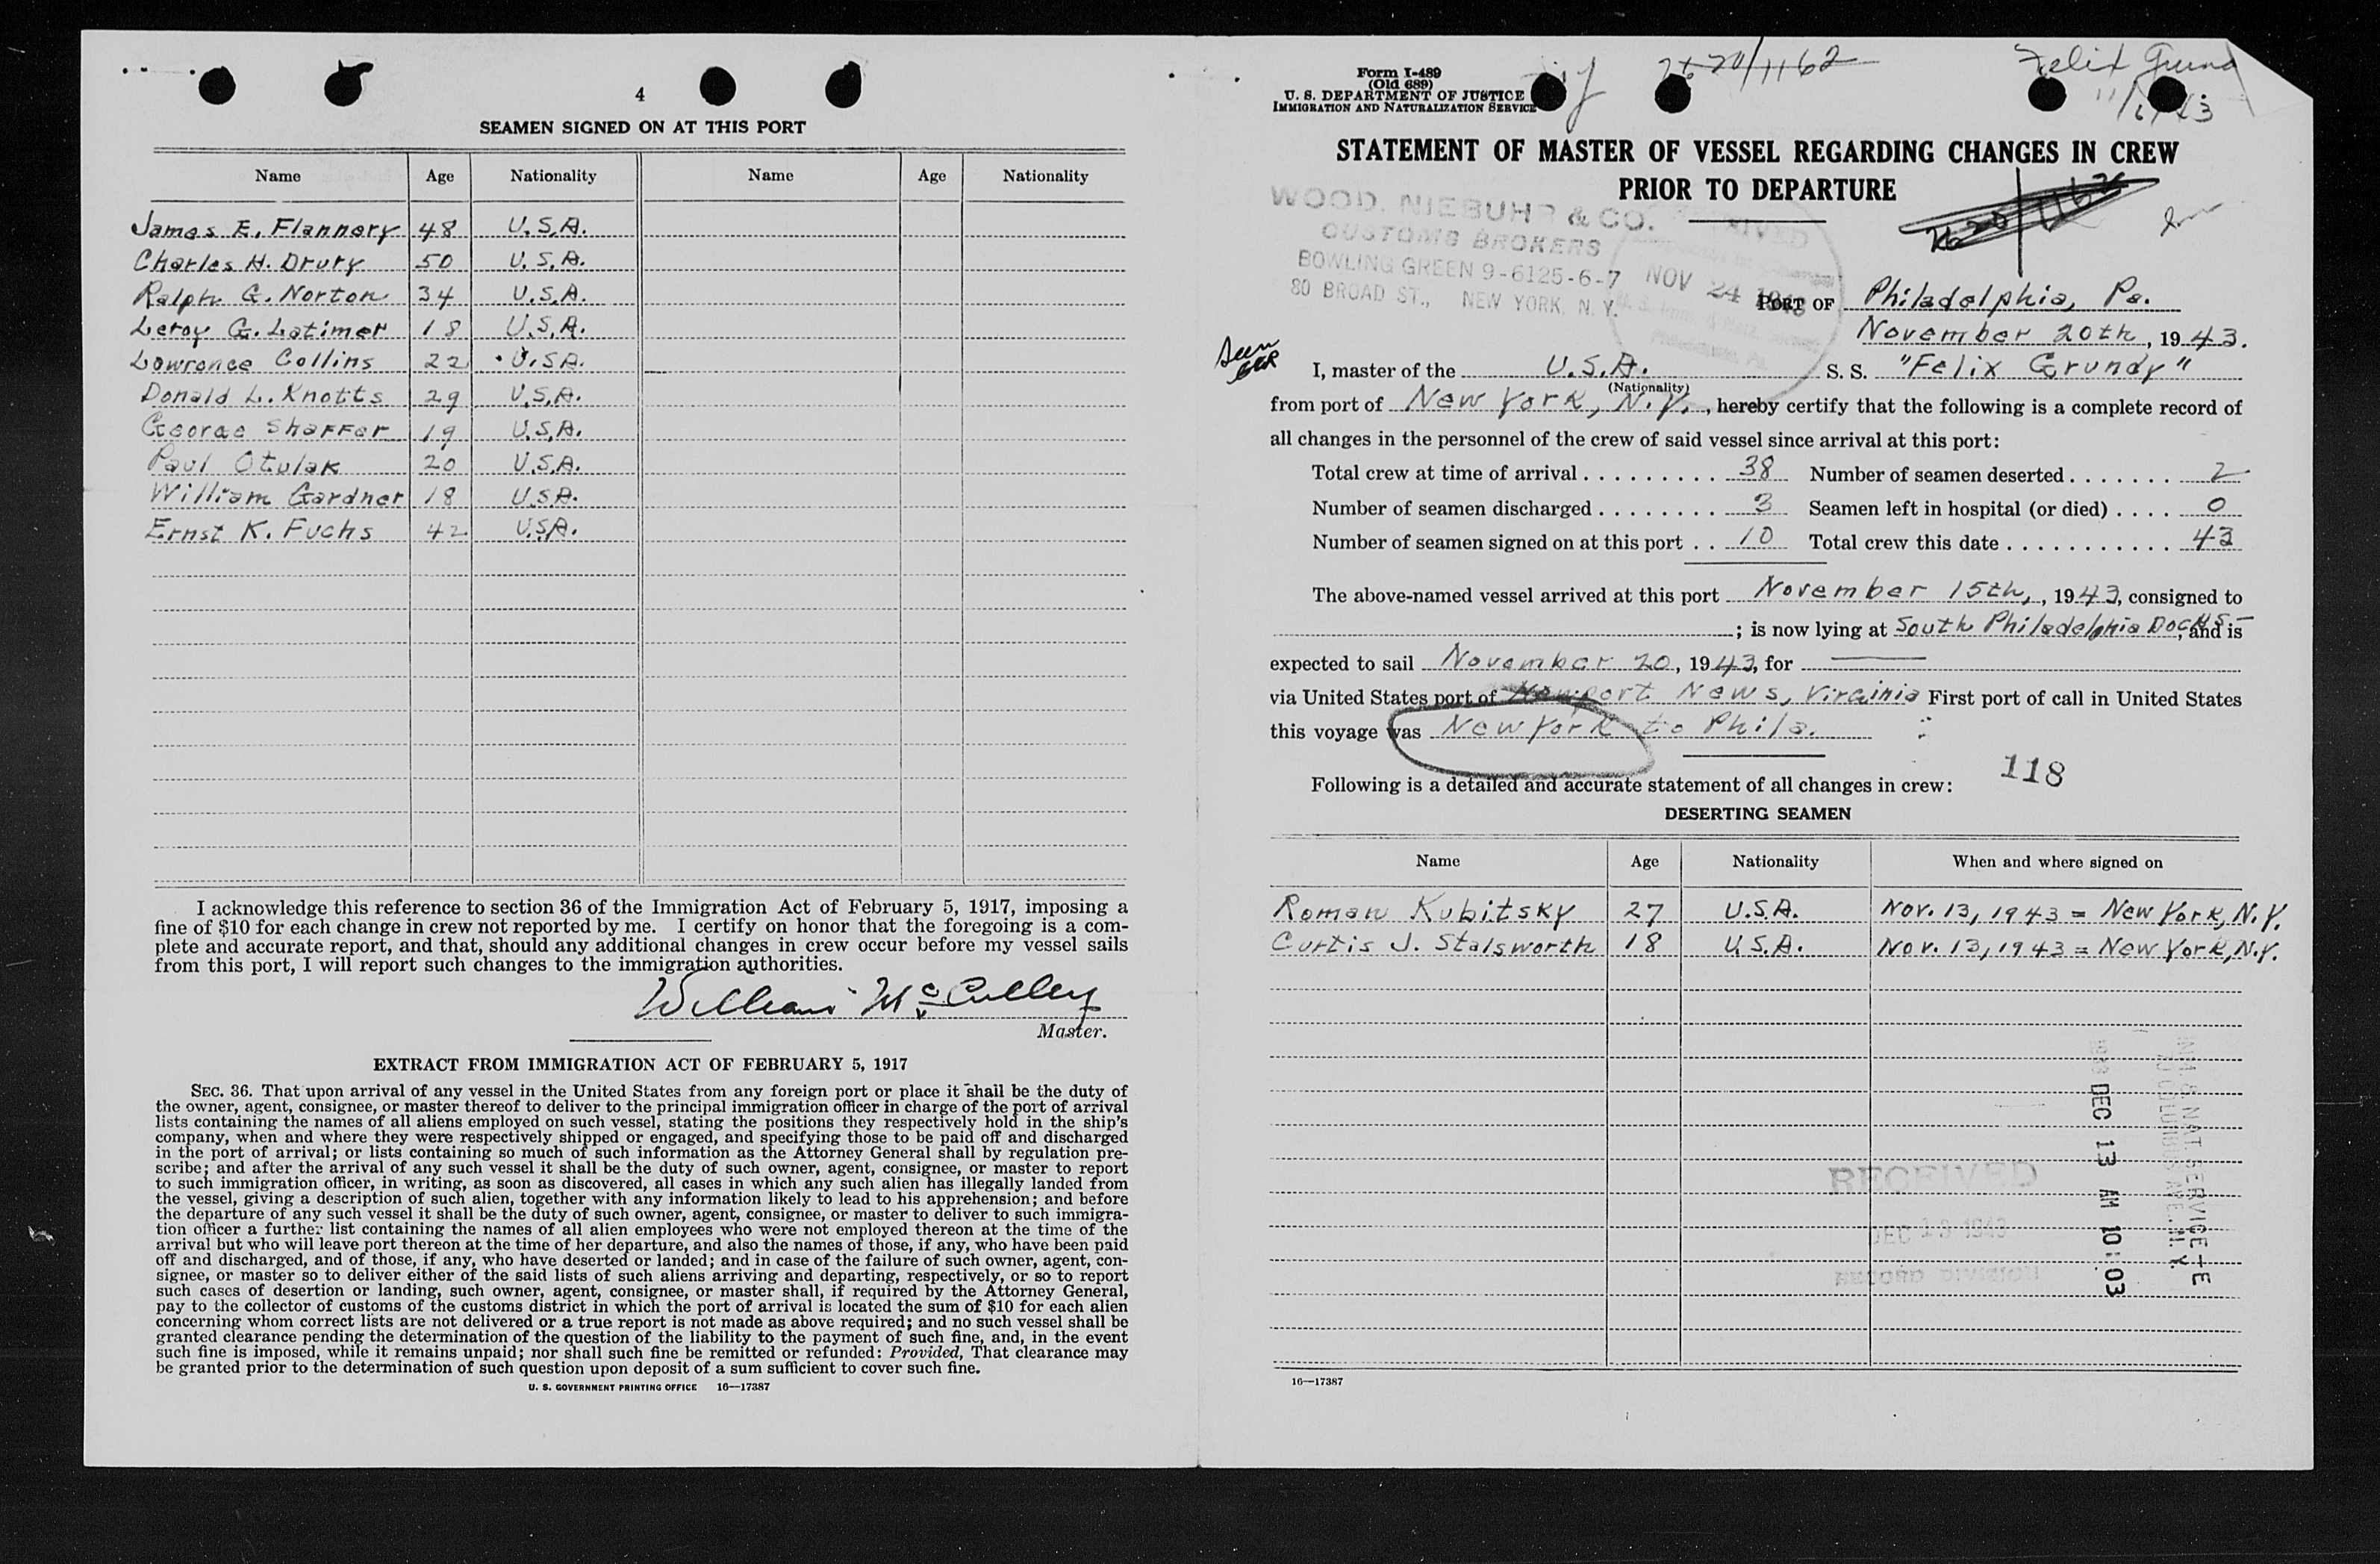 4
SEAMEN SIGNED ON AT THIS PORT
Name Age Nationality Name Age Nationality
James E. Flannery 48 U.S.A.
Charles H. Drury 50 U.S.A.
Ralph G. Norton 34 U.S.A.
Leroy G. Latimer 18 U.S.A.
Lawrence Collins 22 U.S.A.
Donald L. Knotts 29 U.S.A.
George Shaffer 19 U.S.A.
Paul Otulak 20 U.S.A.
William Gardner 18 U.S.A.
Ernst K. Fuchs 42 U.S.A.
I acknowledge this reference to section 36 of the Immigration Act of February 5, 1917, imposing a
fine of $10 for each change in crew not reported by me. I certify on honor that the foregoing is a com-
plete and accurate report, and that, should any additional changes in crew occur before my vessel sails
from this port, I will report such changes to the immigration authorities.
William McCulley
Master.
EXTRACT FROM IMMIGRATION ACT OF FEBRUARY 5, 1917
SEC. 36. That upon arrival of any vessel in the United States from any foreign port or place it shall be the duty of
the owner, agent, consignee, or master thereof to deliver to the principal immigration officer in charge of the port of arrival
lists containing the names of all aliens employed on such vessel, stating the positions they respectively hold in the ship's
company, when and where they were respectively shipped or engaged, and specifying those to be paid off and discharged
in the port of arrival; or lists containing so much of such information as the Attorney General shall by regulation pre-
scribe; and after the arrival of any such vessel it shall be the duty of such owner, agent, consignee, or master to report
to such immigration officer, in writing, as soon as discovered, all cases in which any such alien has illegally landed from
the vessel, giving a description of such alien, together with any information likely to lead to his apprehension; and before
the departure of any such vessel it shall be the duty of such owner, agent, consignee, or master to deliver to such immigra-
tion officer a further list containing the names of all alien employees who were not employed thereon at the time of the
arrival but who will leave port thereon at the time of her departure, and also the names of those, if any, who have been paid
off and discharged, and of those, if any, who have deserted or landed; and in case of the failure of such owner, agent, con-
signee, or master so to deliver either of the said lists of such aliens arriving and departing, respectively, or so to report
such cases of desertion or landing, such owner, agent, consignee, or master shall, if required by the Attorney General,
pay to the collector of customs of the customs district in which the port of arrival is located the sum of $10 for each alien
concerning whom correct lists are not delivered or a true report is not made as above required; and no such vessel shall be
granted clearance pending the determination of the question of the liability to the payment of such fine, and, in the event
such fine is imposed, while it remains unpaid; nor shall such fine be remitted or refunded: Provided, That clearance may
be granted prior to the determination of such question upon deposit of a sum sufficient to cover such fine.
U. S. GOVERNMENT PRINTING OFFICE 16—17387
Form I-489
(Old 689)
U. S. DEPARTMENT OF JUSTICE
IMMIGRATION AND NATURALIZATION SERVICE
2620/1162
Felix Grund
STATEMENT OF MASTER OF VESSEL REGARDING CHANGES IN CREW
PRIOR TO DEPARTURE
WOOD, NIEBUHR & CO.
CUSTOMS BROKERS
BOWLING GREEN 9-6125-6-7
80 BROAD ST., NEW YORK, N. Y.
NOV 24 1943
PORT OF Philadelphia, Pa.
November 20th, 1943.
Seen
I, master of the U.S.A. S. S. "Felix Grundy"
(Nationality)
from port of New York, N.Y., hereby certify that the following is a complete record of
all changes in the personnel of the crew of said vessel since arrival at this port:
Total crew at time of arrival 38 Number of seamen deserted 2
Number of seamen discharged 3 Seamen left in hospital (or died) 0
Number of seamen signed on at this port 10 Total crew this date 43
The above-named vessel arrived at this port November 15th, 1943, consigned to
; is now lying at South Philadelphia Docks, and is
expected to sail November 20, 1943, for
via United States port of Newport News, Virginia First port of call in United States
this voyage was New York to Phila.
118
Following is a detailed and accurate statement of all changes in crew:
DESERTING SEAMEN
Name Age Nationality When and where signed on
Roman Kubitsky 27 U.S.A. Nov. 13, 1943 = New York, N.Y.
Curtis J. Stalsworth 18 U.S.A. Nov. 13, 1943 = New York, N.Y.
1943 DEC 13 AM 10:03
RECEIVED
DEC 13 1943
RECORD DIVISION
16—17387